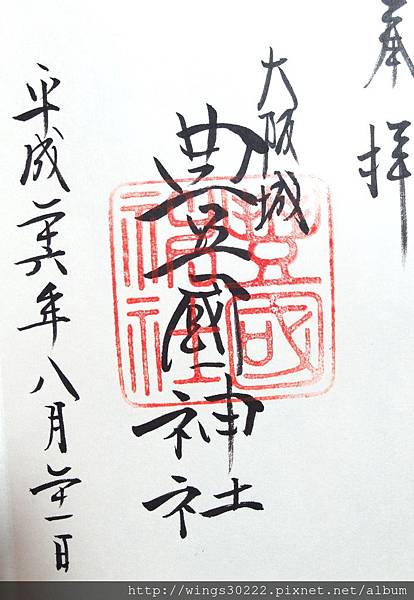 奉拝
大阪城
豊國神社
豊國
神社
平成二十六年八月二十一日
http://wings30222.pixnet.net/album